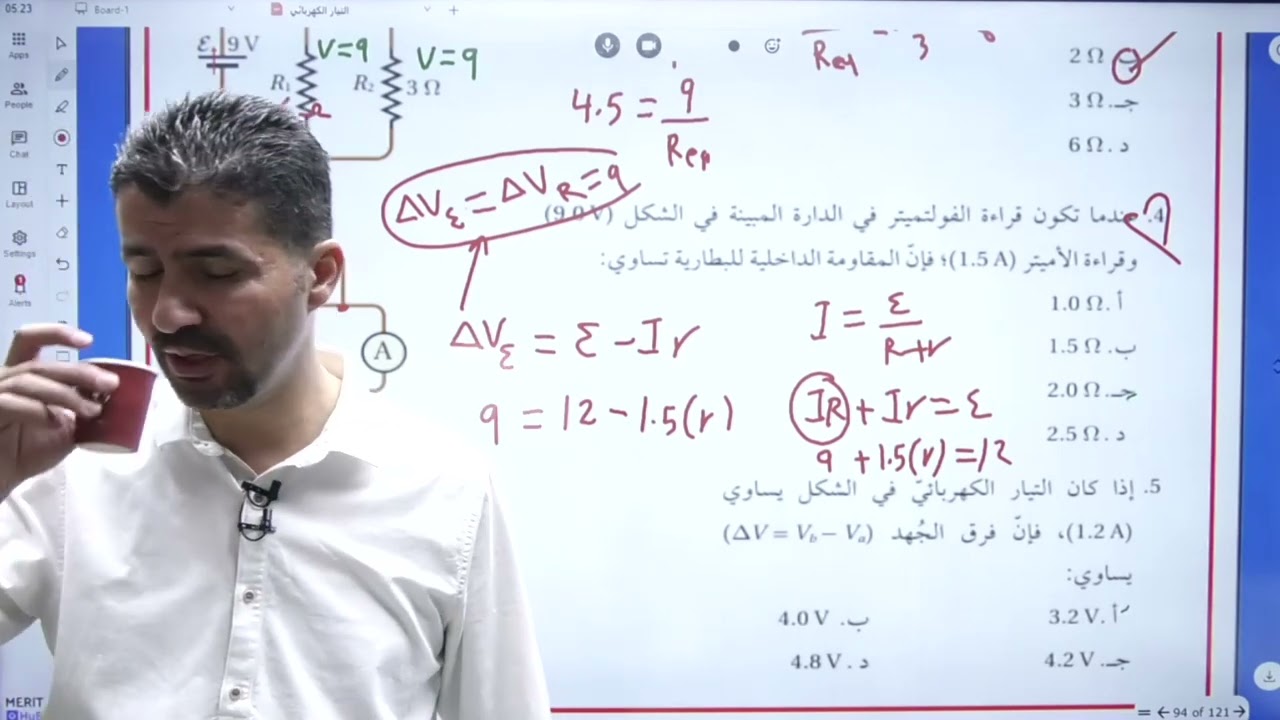 05.23
Board-1
التيار الكهربائي
Apps
People
Chat
Layout
Settings
Alerts
ε 9 V
V=9
V=9
R₁
R₂
3 Ω
4.5 = 9/Req
Req 3
2 Ω
جـ. 3 Ω
د. 6 Ω
ΔVε = ΔVR = 9
4. عندما تكون قراءة الفولتميتر في الدارة المبينة في الشكل (9.0 V)
وقراءة الأميتر (1.5 A)؛ فإنّ المقاومة الداخلية للبطارية تساوي:
أ. 1.0 Ω
ب. 1.5 Ω
جـ. 2.0 Ω
د. 2.5 Ω
A
ΔVε = ε − Ir
9 = 12 − 1.5(r)
I = ε/R+r
IR + Ir = ε
9 + 1.5(r) = 12
5. إذا كان التيار الكهربائيّ في الشكل يساوي
(1.2 A)، فإنّ فرق الجُهد (ΔV = Vb − Va)
يساوي:
أ. 3.2 V
ب. 4.0 V
جـ. 4.2 V
د. 4.8 V
MERIT
HuB
94 of 121